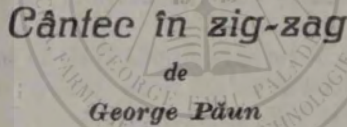 Cântec în zig-zag
de
George Păun